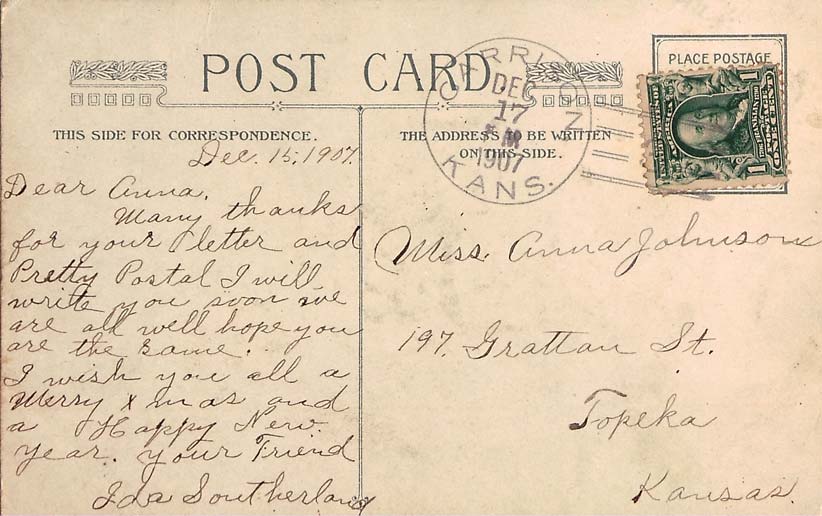 POST CARD
PLACE POSTAGE
GARRISON
DEC
17
1907
KANS.
THIS SIDE FOR CORRESPONDENCE.
THE ADDRESS TO BE WRITTEN
ON THIS SIDE.
Dec. 15, 1907.
Dear Anna.
Many thanks
for your letter and
Pretty Postal I will
write you soon we
are all well hope you
are the same.
I wish you all a
Merry x mas and
a Happy New
year. your Friend
Ida Southerland
Miss. Anna Johnson
197. Grattan St.
Topeka
Kansas.
1 ONE CENT 1